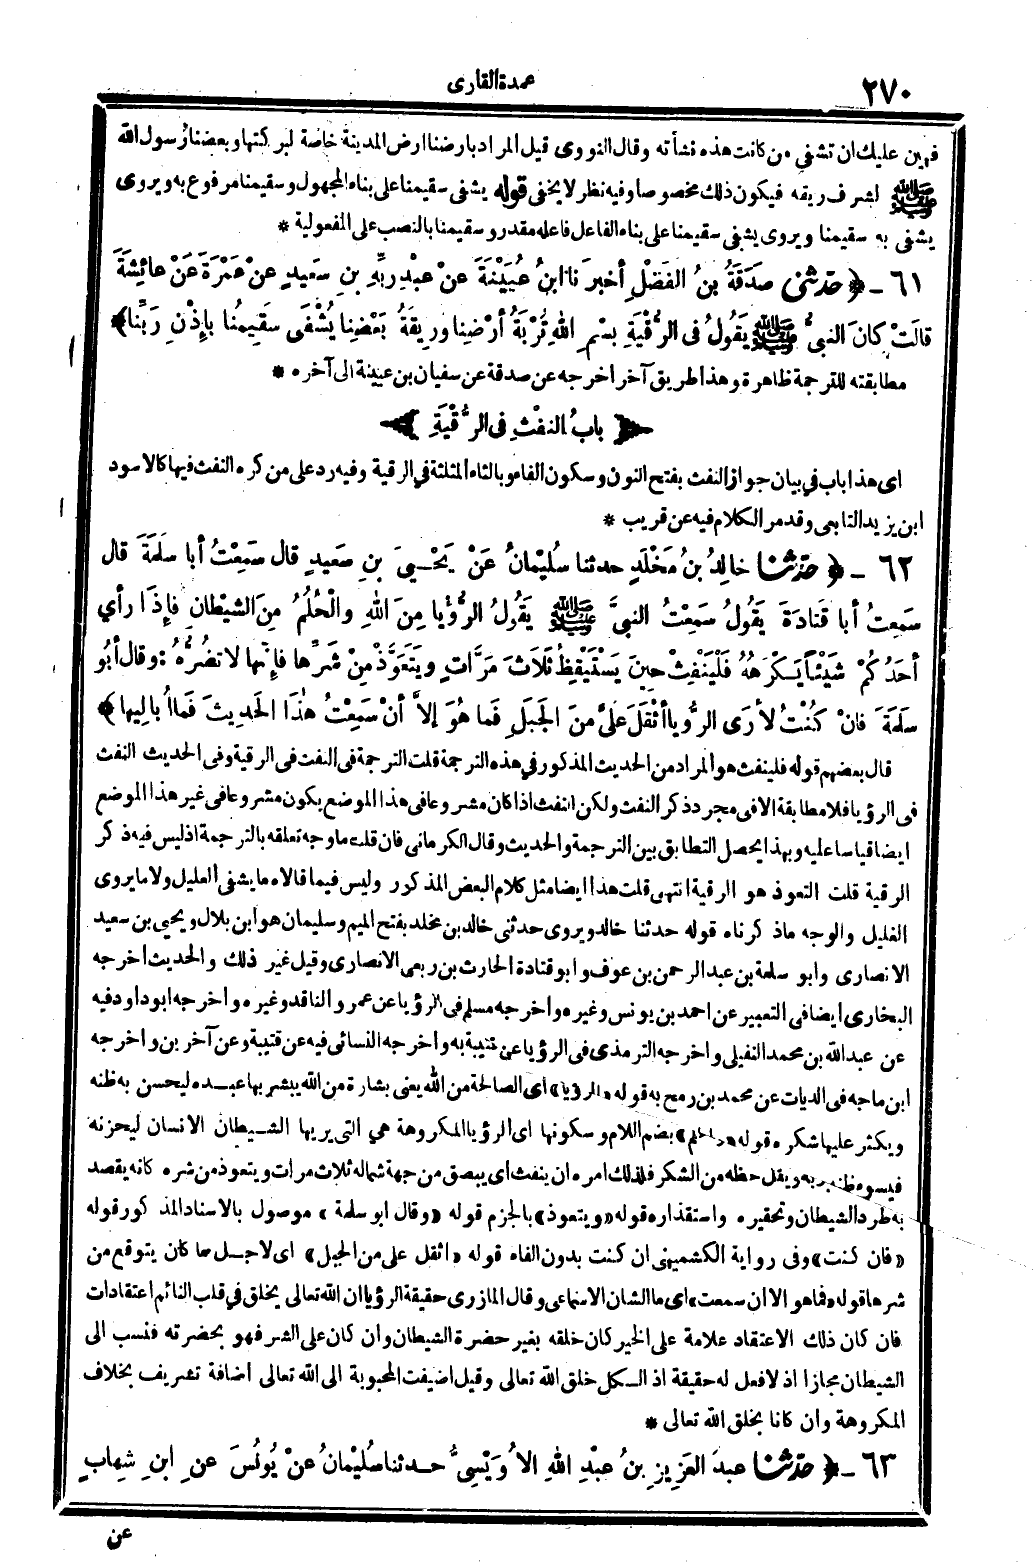 ٢٧٠
عمدة القارى
فهين عليك ان تشفي من كانت هذه نشأته وقال النووى قيل المراد بارضنا ارض المدينة خاصة لبركتها وبعضنا رسول الله
ﷺ لشرف ريقه فيكون ذلك مخصوصا وفيه نظر لا يخفى قوله يشفى سقيمنا على بناء المجهول وسقيمنا مرفوع به ويروى
يشفى به سقيمنا ويروى يشفى سقيمنا على بناء الفاعل فاعله مقدر وسقيمنا بالنصب على المفعولية *
٦١ - ﴿ حَدَّثَنِي صَدَقَةُ بنُ الفَضْلِ أخبرَنا ابنُ عُيَيْنَةَ عنْ عبْدِ رَبِّهِ بنِ سَعِيدٍ عنْ عَمْرَةَ عَنْ عائِشَةَ
قالَتْ كانَ النبىُّ ﷺ يَقُولُ فى الرُّقْيَةِ بِسْمِ اللهِ تُرْبَةُ أرْضِنا ورِيقَةُ بَعْضِنا يُشْفَى سَقِيمُنا بإذْنِ رَبِّنا ﴾
مطابقته للترجمة ظاهرة وهذا طريق آخر اخرجه عن صدقة عن سفيان بن عيينة الى آخره *
﴿ بابُ النفْثِ فى الرُّقْيَةِ ﴾
اى هذا باب في بيان جواز النفث بفتح النون وسكون الفاء وبالثاء المثلثة في الرقية وفيه رد على من كره النفث فيها كالاسود
ابن يزيد التابعى وقد مر الكلام فيه عن قريب *
٦٢ - ﴿ حَدَّثَنا خالِدُ بنُ مَخْلَدٍ حدثنا سُلَيْمانُ عَنْ يَحْيىَ بنِ سَعِيدٍ قال سَمِعْتُ أبا سَلَمَةَ قال
سَمِعتُ أبا قَتادَةَ يَقُولُ سَمِعْتُ النبىَّ ﷺ يَقُولُ الرُّؤْيا مِنَ اللهِ والْحُلُمُ مِنَ الشيْطانِ فإذَا رأي
أحَدُكُمْ شَيْئاً يَكْرَهُهُ فَلْيَنْفِثْ حِينَ يَسْتَيْقِظُ ثَلاثَ مَرَّاتٍ ويَتَعَوَّذْ مِنْ شَرِّها فإنَّها لا تَضُرُّهُ : وقال أبُو
سَلَمَةَ فانْ كُنْتُ لأرَى الرُّؤيا أثْقَلَ عَلَىَّ منَ الجَبَلِ فَما هُوَ إلاَّ أنْ سَمِعْتُ هٰذَا الحَدِيثَ فَما أُبالِيها ﴾
قال بعضهم قوله فلينفث هو المراد من الحديث المذكور في هذه الترجمة قلت الترجمة فى النفث فى الرقية وفى الحديث النفث
فى الرؤيا فلا مطابقة الا فى مجرد ذكر النفث ولكن النفث اذا كان مشروعا فى هذا الموضع يكون مشروعا فى غير هذا الموضع
ايضا قياسا عليه وبهذا يحصل التطابق بين الترجمة والحديث وقال الكرمانى فان قلت ما وجه تعلقه بالترجمة اذ ليس فيه ذكر
الرقية قلت التعوذ هو الرقية انتهى قلت هذا ايضا مثل كلام البعض المذكور وليس فيما قالاه ما يشفى العليل ولا ما يروى
الغليل والوجه ماذكرناه قوله حدثنا خالد ويروى حدثنى خالد بن مخلد بفتح الميم وسليمان هو ابن بلال ويحيى بن سعيد
الانصارى وابو سلمة بن عبدالرحمن بن عوف وابو قتادة الحارث بن ربعى الانصارى وقيل غير ذلك والحديث اخرجه
البخارى ايضا فى التعبير عن احمد بن يونس وغيره واخرجه مسلم فى الرؤيا عن عمرو الناقد وغيره واخرجه ابو داود فيه
عن عبدالله بن محمد النفيلى واخرجه الترمذى فى الرؤيا عن قتيبة به واخرجه النسائى فيه عن قتيبة وعن آخرين واخرجه
ابن ماجه فى الديات عن محمد بن رمح به قوله «الرؤيا» اى الصالحة من الله يعنى بشارة من الله يبشر بها عبده ليحسن به ظنه
ويكثر عليها شكره قوله «والحلم» بضم اللام وسكونها اى الرؤيا المكروهة هي التى يريها الشيطان الانسان ليحزنه
فيسوء ظنه بربه ويقل حظه من الشكر فلذلك امره ان ينفث اى يبصق من جهة شماله ثلاث مرات ويتعوذ من شره كانه يقصد
به طرد الشيطان وتحقيره واستقذاره قوله «ويتعوذ» بالجزم قوله «وقال ابو سلمة» موصول بالاسناد المذكور قوله
«فان كنت» وفى رواية الكشميهنى ان كنت بدون الفاء قوله «اثقل على من الجبل» اى لاجل ما كان يتوقع من
شرها قوله «فما هو الا ان سمعت» اى ما الشان الا سماعى وقال المازرى حقيقة الرؤيا ان الله تعالى يخلق في قلب النائم اعتقادات
فان كان ذلك الاعتقاد علامة على الخير كان خلقه بغير حضرة الشيطان وان كان على الشر فهو بحضرته فنسب الى
الشيطان مجازا اذ لا فعل له حقيقة اذ الكل خلق الله تعالى وقيل اضيفت المحبوبة الى الله تعالى اضافة تشريف بخلاف
المكروهة وان كانا بخلق الله تعالى *
٦٣ - ﴿ حَدَّثَنا عبدُ العَزِيزِ بنُ عبْدِ اللهِ الاُوَيْسِىُّ حدثنا سُلَيْمانُ عنْ يُونُسَ عنِ ابنِ شِهابٍ
عن